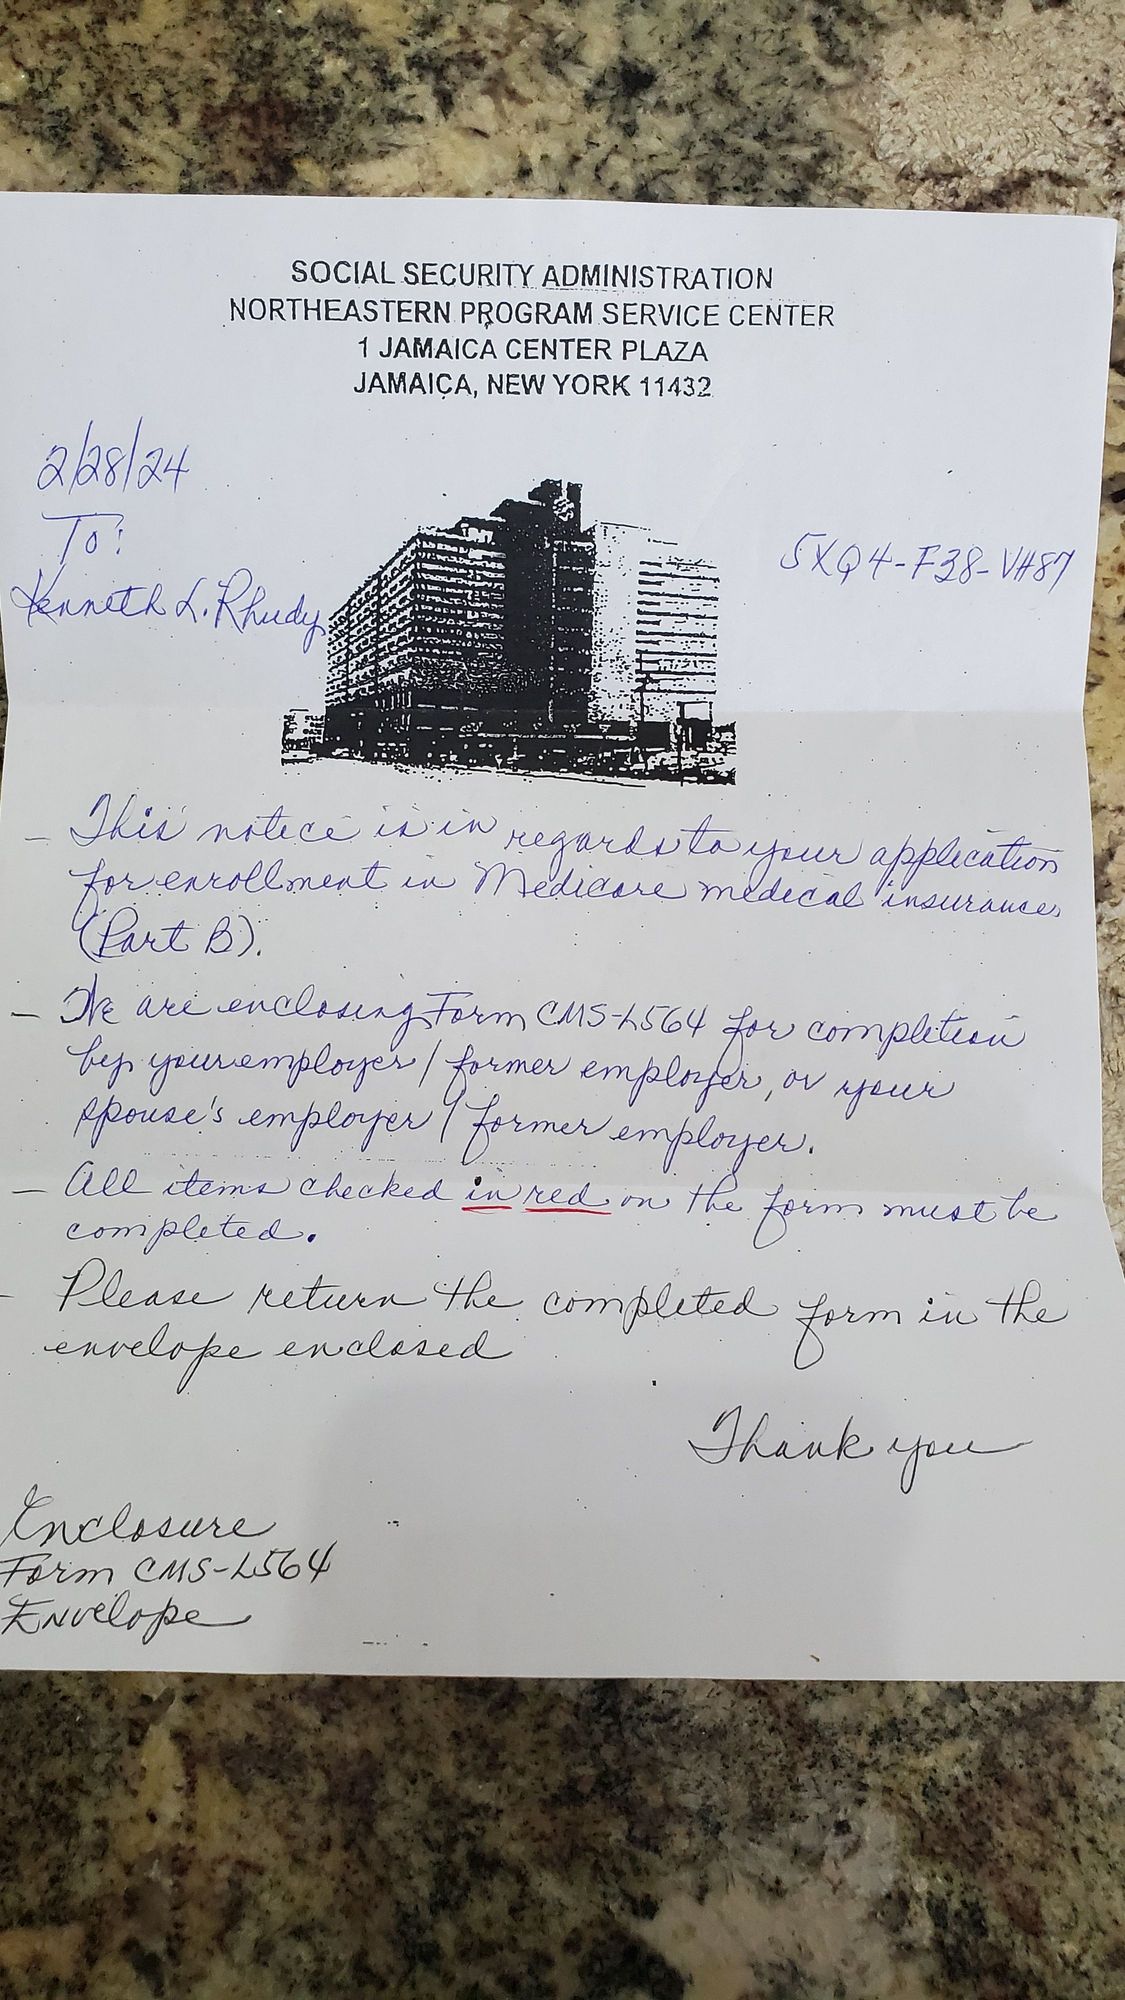 SOCIAL SECURITY ADMINISTRATION
NORTHEASTERN PROGRAM SERVICE CENTER
1 JAMAICA CENTER PLAZA
JAMAICA, NEW YORK 11432
2/28/24
To:
Kenneth L. Rhudy
5XQ4-F38-VH87
- This notice is in regards to your application
for enrollment in Medicare medical insurance
(Part B).
- We are enclosing Form CMS-L564 for completion
by your employer/former employer, or your
spouse's employer/former employer.
- All items checked in red on the form must be
completed.
- Please return the completed form in the
envelope enclosed
Thank you
Enclosure
Form CMS-L564
Envelope